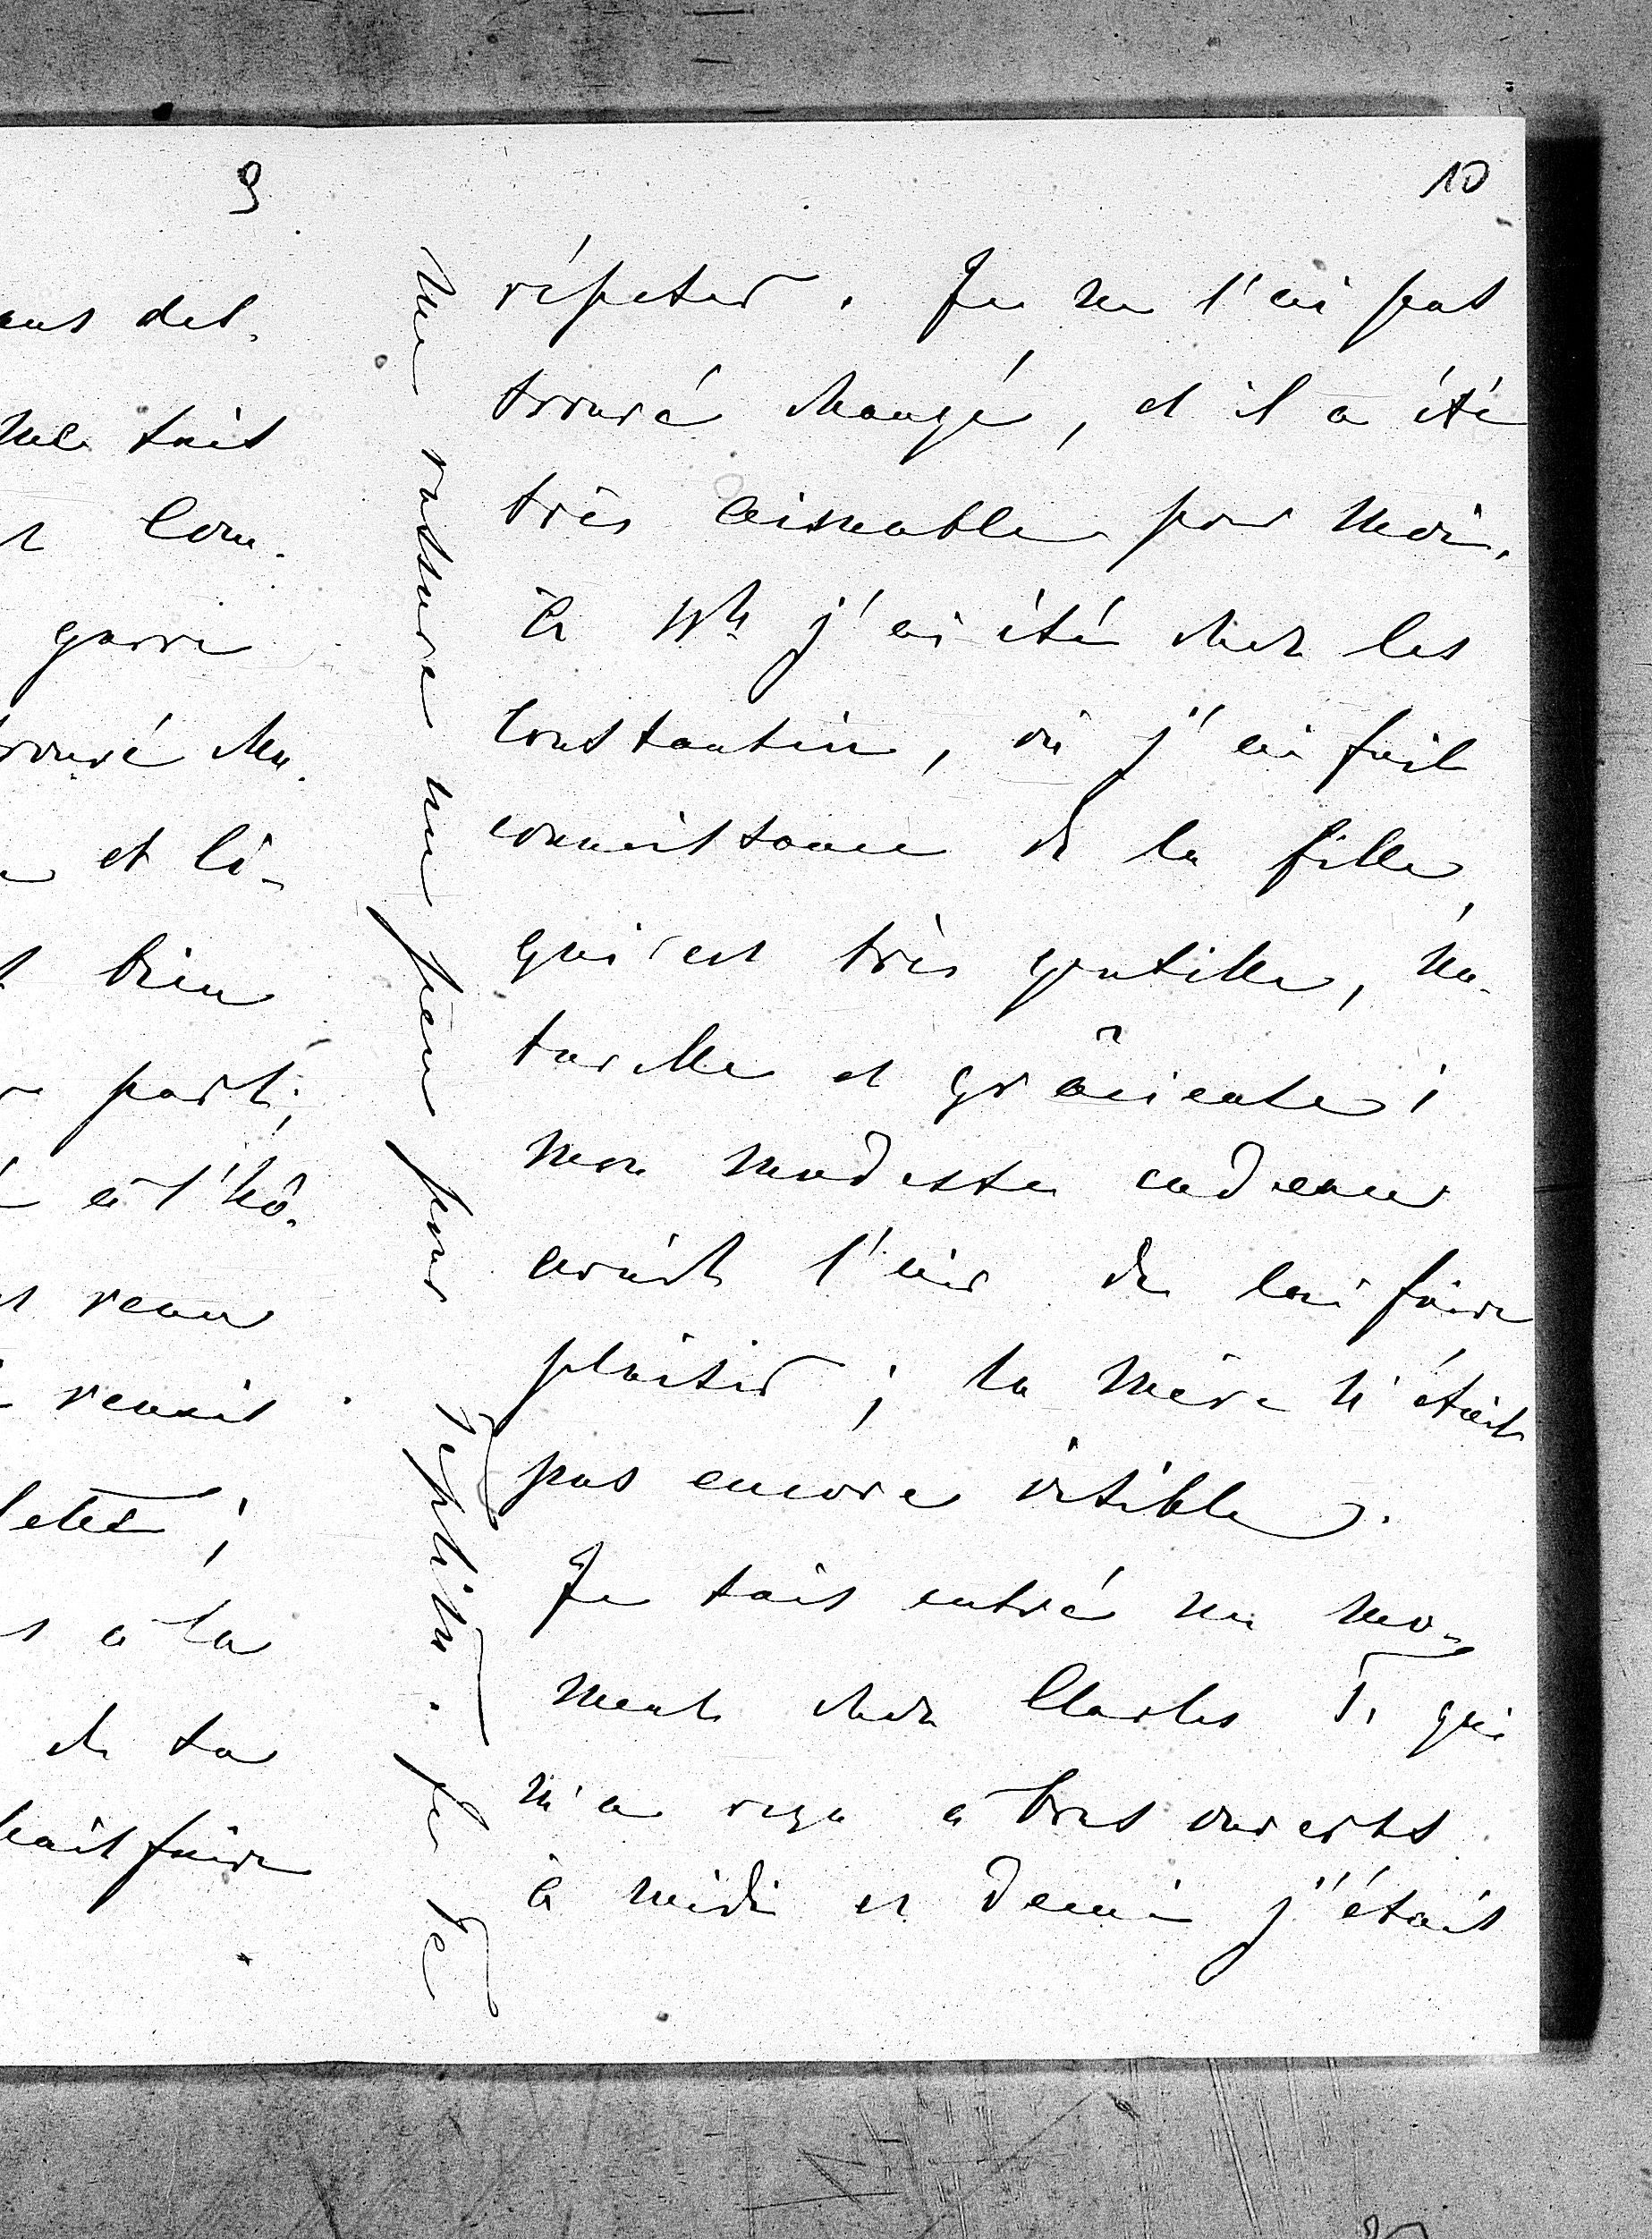 9
ans des.
me suis
com.
garni
trouvé Ma.
et li-
bien
parti;
à l'hô.
venu
venait
;
à la
de sa
fait faire
10
répéter. Je ne l'ai pas
trouvé changé, et il a été
très aimable pour moi.
À 11h j'ai été chez les
Constantin, où j'ai fait
connaissance de la fille,
qui est très gentille, na-
turelle et grâcieuse;
mon modeste cadeau
avait l'air de lui faire
plaisir; la mère n'était
pas encore visible.
Je suis entré un mo-
ment chez Charles T. qui
m'a reçu à bras ouverts.
à midi et demi j'étais
me rassure un peu pour